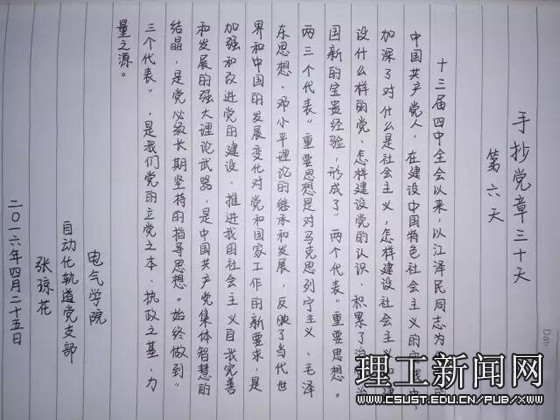 手抄党章三十天
第六天
十三届四中全会以来，以江泽民同志为
中国共产党人，在建设中国特色社会主义的实践中，
加深了对什么是社会主义，怎样建设社会主义和建
设什么样的党、怎样建设党的认识，积累了治党治
国新的宝贵经验，形成了“两个代表”重要思想。
两三个代表”重要思想是对马克思列宁主义、毛泽
东思想、邓小平理论的继承和发展，反映了当代世
界和中国的发展变化对党和国家工作的新要求，是
加强和改进党的建设、推进我国社会主义自我完善
和发展的强大理论武器，是中国共产党集体智慧的
结晶，是党必须长期坚持的指导思想。始终做到“
三个代表”，是我们党的立党之本、执政之基、力
量之源。
电气学院
自动化轨道党支部
张琼花
二〇一六年四月二十五日
理工新闻网
WWW.CSUST.EDU.CN/PUB/XWW